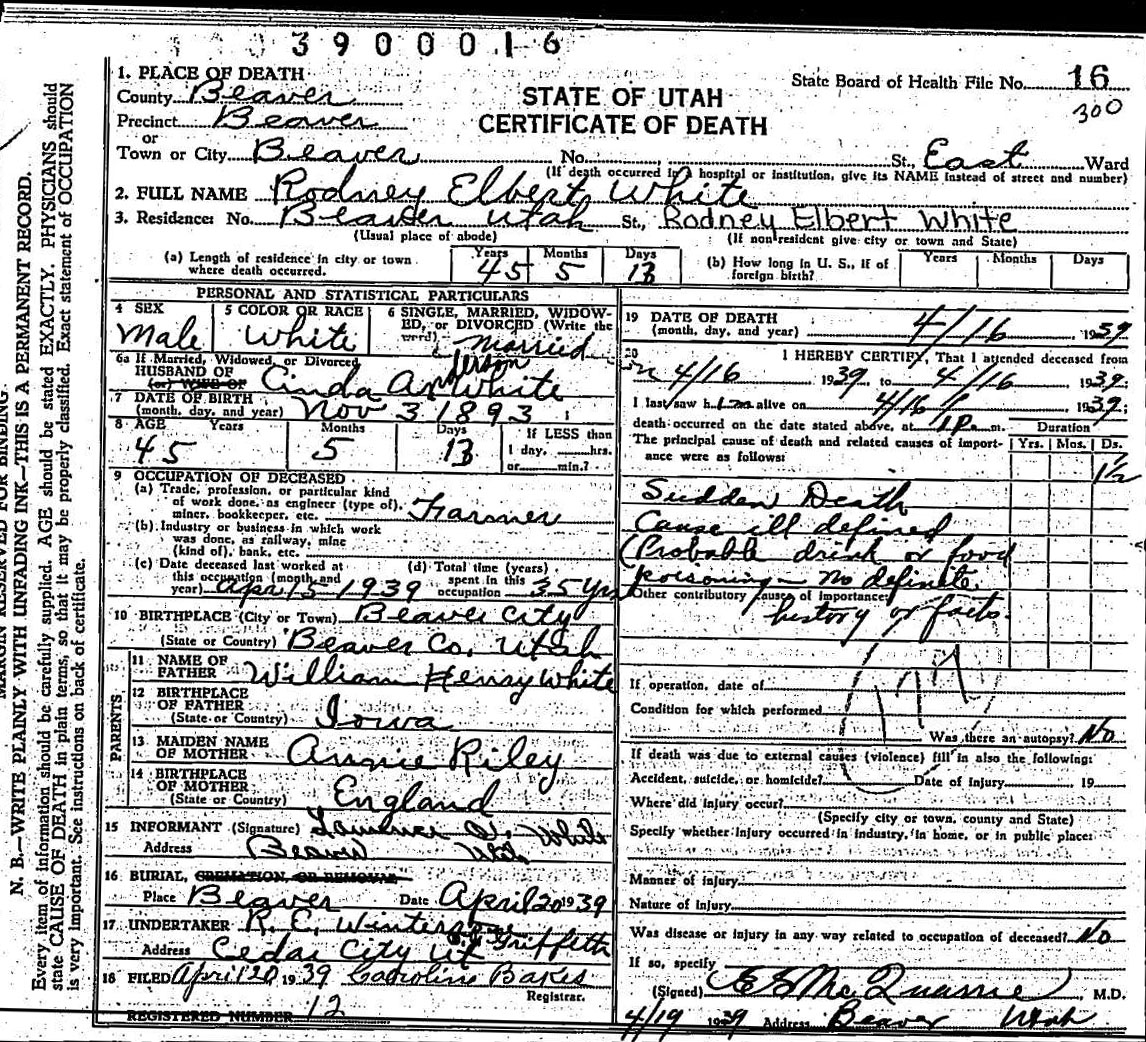 3900016
State Board of Health File No. 16
300
STATE OF UTAH
CERTIFICATE OF DEATH
1. PLACE OF DEATH
County Beaver
Precinct Beaver
or
Town or City Beaver No. St., East Ward
(If death occurred in a hospital or institution, give its NAME instead of street and number)
2. FULL NAME Rodney Elbert White
3. Residence: No. Beaver Utah St., Rodney Elbert White
(Usual place of abode) (If nonresident give city or town and State)
(a) Length of residence in city or town where death occurred. Years 45 Months 5 Days 13
(b) How long in U. S., if of foreign birth? Years Months Days
PERSONAL AND STATISTICAL PARTICULARS
4 SEX Male
5 COLOR OR RACE White
6 SINGLE, MARRIED, WIDOWED, or DIVORCED (Write the word) Married
6a If Married, Widowed, or Divorced
HUSBAND OF (or) WIFE OF Cinda White
7 DATE OF BIRTH (month, day, and year) Nov 3 1893
8 AGE Years 45 Months 5 Days 13 If LESS than 1 day, hrs. or min.?
9 OCCUPATION OF DECEASED
(a) Trade, profession, or particular kind of work done, as engineer (type of), miner, bookkeeper, etc. Farmer
(b) Industry or business in which work was done, as railway, mine (kind of), bank, etc.
(c) Date deceased last worked at this occupation (month and year) Apr 15-1939
(d) Total time (years) spent in this occupation 35 Yrs
10 BIRTHPLACE (City or Town) Beaver City
(State or Country) Beaver Co. Utah
PARENTS
11 NAME OF FATHER William Henry White
12 BIRTHPLACE OF FATHER (State or Country) Iowa
13 MAIDEN NAME OF MOTHER Annie Riley
14 BIRTHPLACE OF MOTHER (State or Country) England
15 INFORMANT (Signature) White
Address Beaver Utah
16 BURIAL, CREMATION, OR REMOVAL
Place Beaver Date April 20 1939
17 UNDERTAKER R. C. Griffeth
Address Cedar City Ut
18 FILED April 20 1939 Caroline Bakes
Registrar.
REGISTERED NUMBER 12
19 DATE OF DEATH (month, day, and year) 4/16 1939
20 I HEREBY CERTIFY, That I attended deceased from
on 4/16 1939 to 4/16 1939;
I last saw him alive on 4/16 1939;
death occurred on the date stated above, at 1 P. m.
The principal cause of death and related causes of importance were as follows: Duration Yrs. Mos. Ds.
1/2
Sudden Death
Cause ill defined
(Probable drink or food
poisoning - No definite
Other contributory causes of importance:
history or facts.
If operation, date of
Condition for which performed
Was there an autopsy? No
If death was due to external causes (violence) fill in also the following:
Accident, suicide, or homicide? Date of Injury 19
Where did injury occur?
(Specify city or town, county and State)
Specify whether injury occurred in industry, in home, or in public place:
Manner of injury
Nature of Injury
Was disease or injury in any way related to occupation of deceased? No
If so, specify
(Signed) McQuarrie, M.D.
4/19 1939 Address Beaver Utah
MARGIN RESERVED FOR BINDING
N. B.—WRITE PLAINLY WITH UNFADING INK—THIS IS A PERMANENT RECORD.
Every item of information should be carefully supplied. AGE should be stated EXACTLY. PHYSICIANS should
state CAUSE OF DEATH in plain terms, so that it may be properly classified. Exact statement of OCCUPATION
is very important. See instructions on back of certificate.